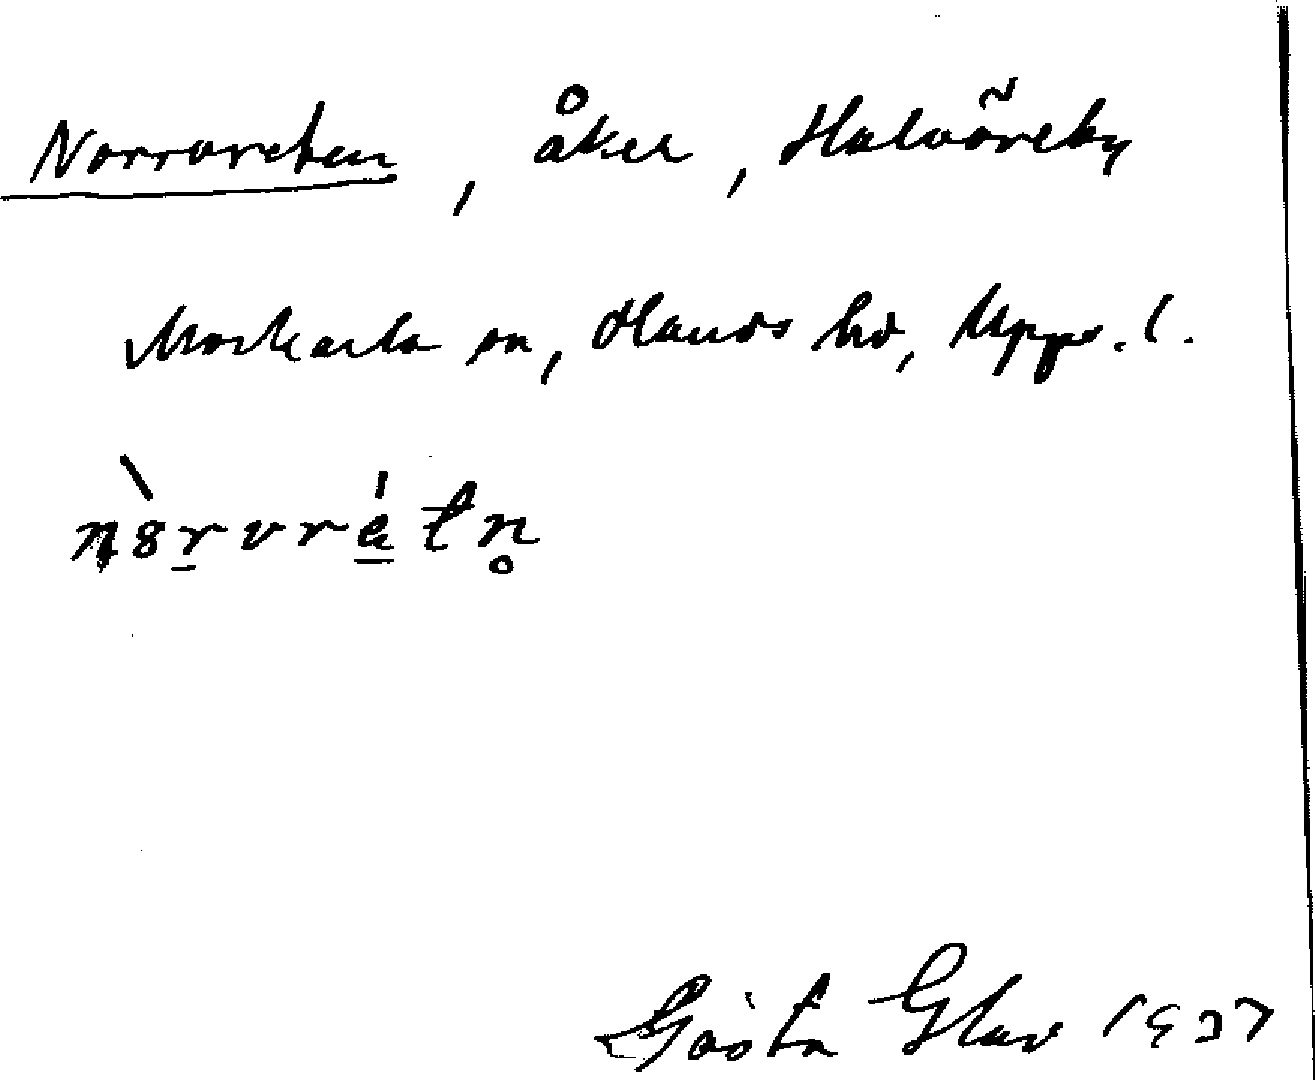 Norrvreten, åker, Halvöreby
Morkarla sn, Olands hd, Upps. l.
Gösta Glav 1937